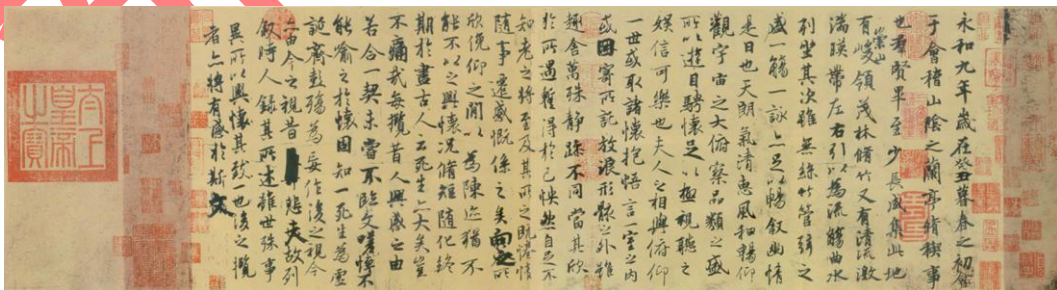 永和九年歲在癸丑暮春之初會
于會稽山陰之蘭亭脩稧事
也群賢畢至少長咸集此地
有崇山峻領茂林脩竹又有清流激
湍暎帶左右引以為流觴曲水
列坐其次雖無絲竹管弦之
盛一觴一詠亦足以暢敘幽情
是日也天朗氣清惠風和暢仰
觀宇宙之大俯察品類之盛
所以遊目騁懷足以極視聽之
娛信可樂也夫人之相與俯仰
一世或取諸懷抱悟言一室之內
或因寄所託放浪形骸之外雖
趣舍萬殊靜躁不同當其欣
於所遇暫得於己怏然自足不
知老之將至及其所之既惓情
隨事遷感慨係之矣向之所
欣俛仰之閒以為陳迹猶不
能不以之興懷況脩短隨化終
期於盡古人云死生亦大矣豈
不痛哉每攬昔人興感之由
若合一契未嘗不臨文嗟悼不
能喻之於懷固知一死生為虛
誕齊彭殤為妄作後之視今
亦由今之視昔悲夫故列
敘時人錄其所述雖世殊事
異所以興懷其致一也後之攬
者亦將有感於斯文
太上皇帝之寶